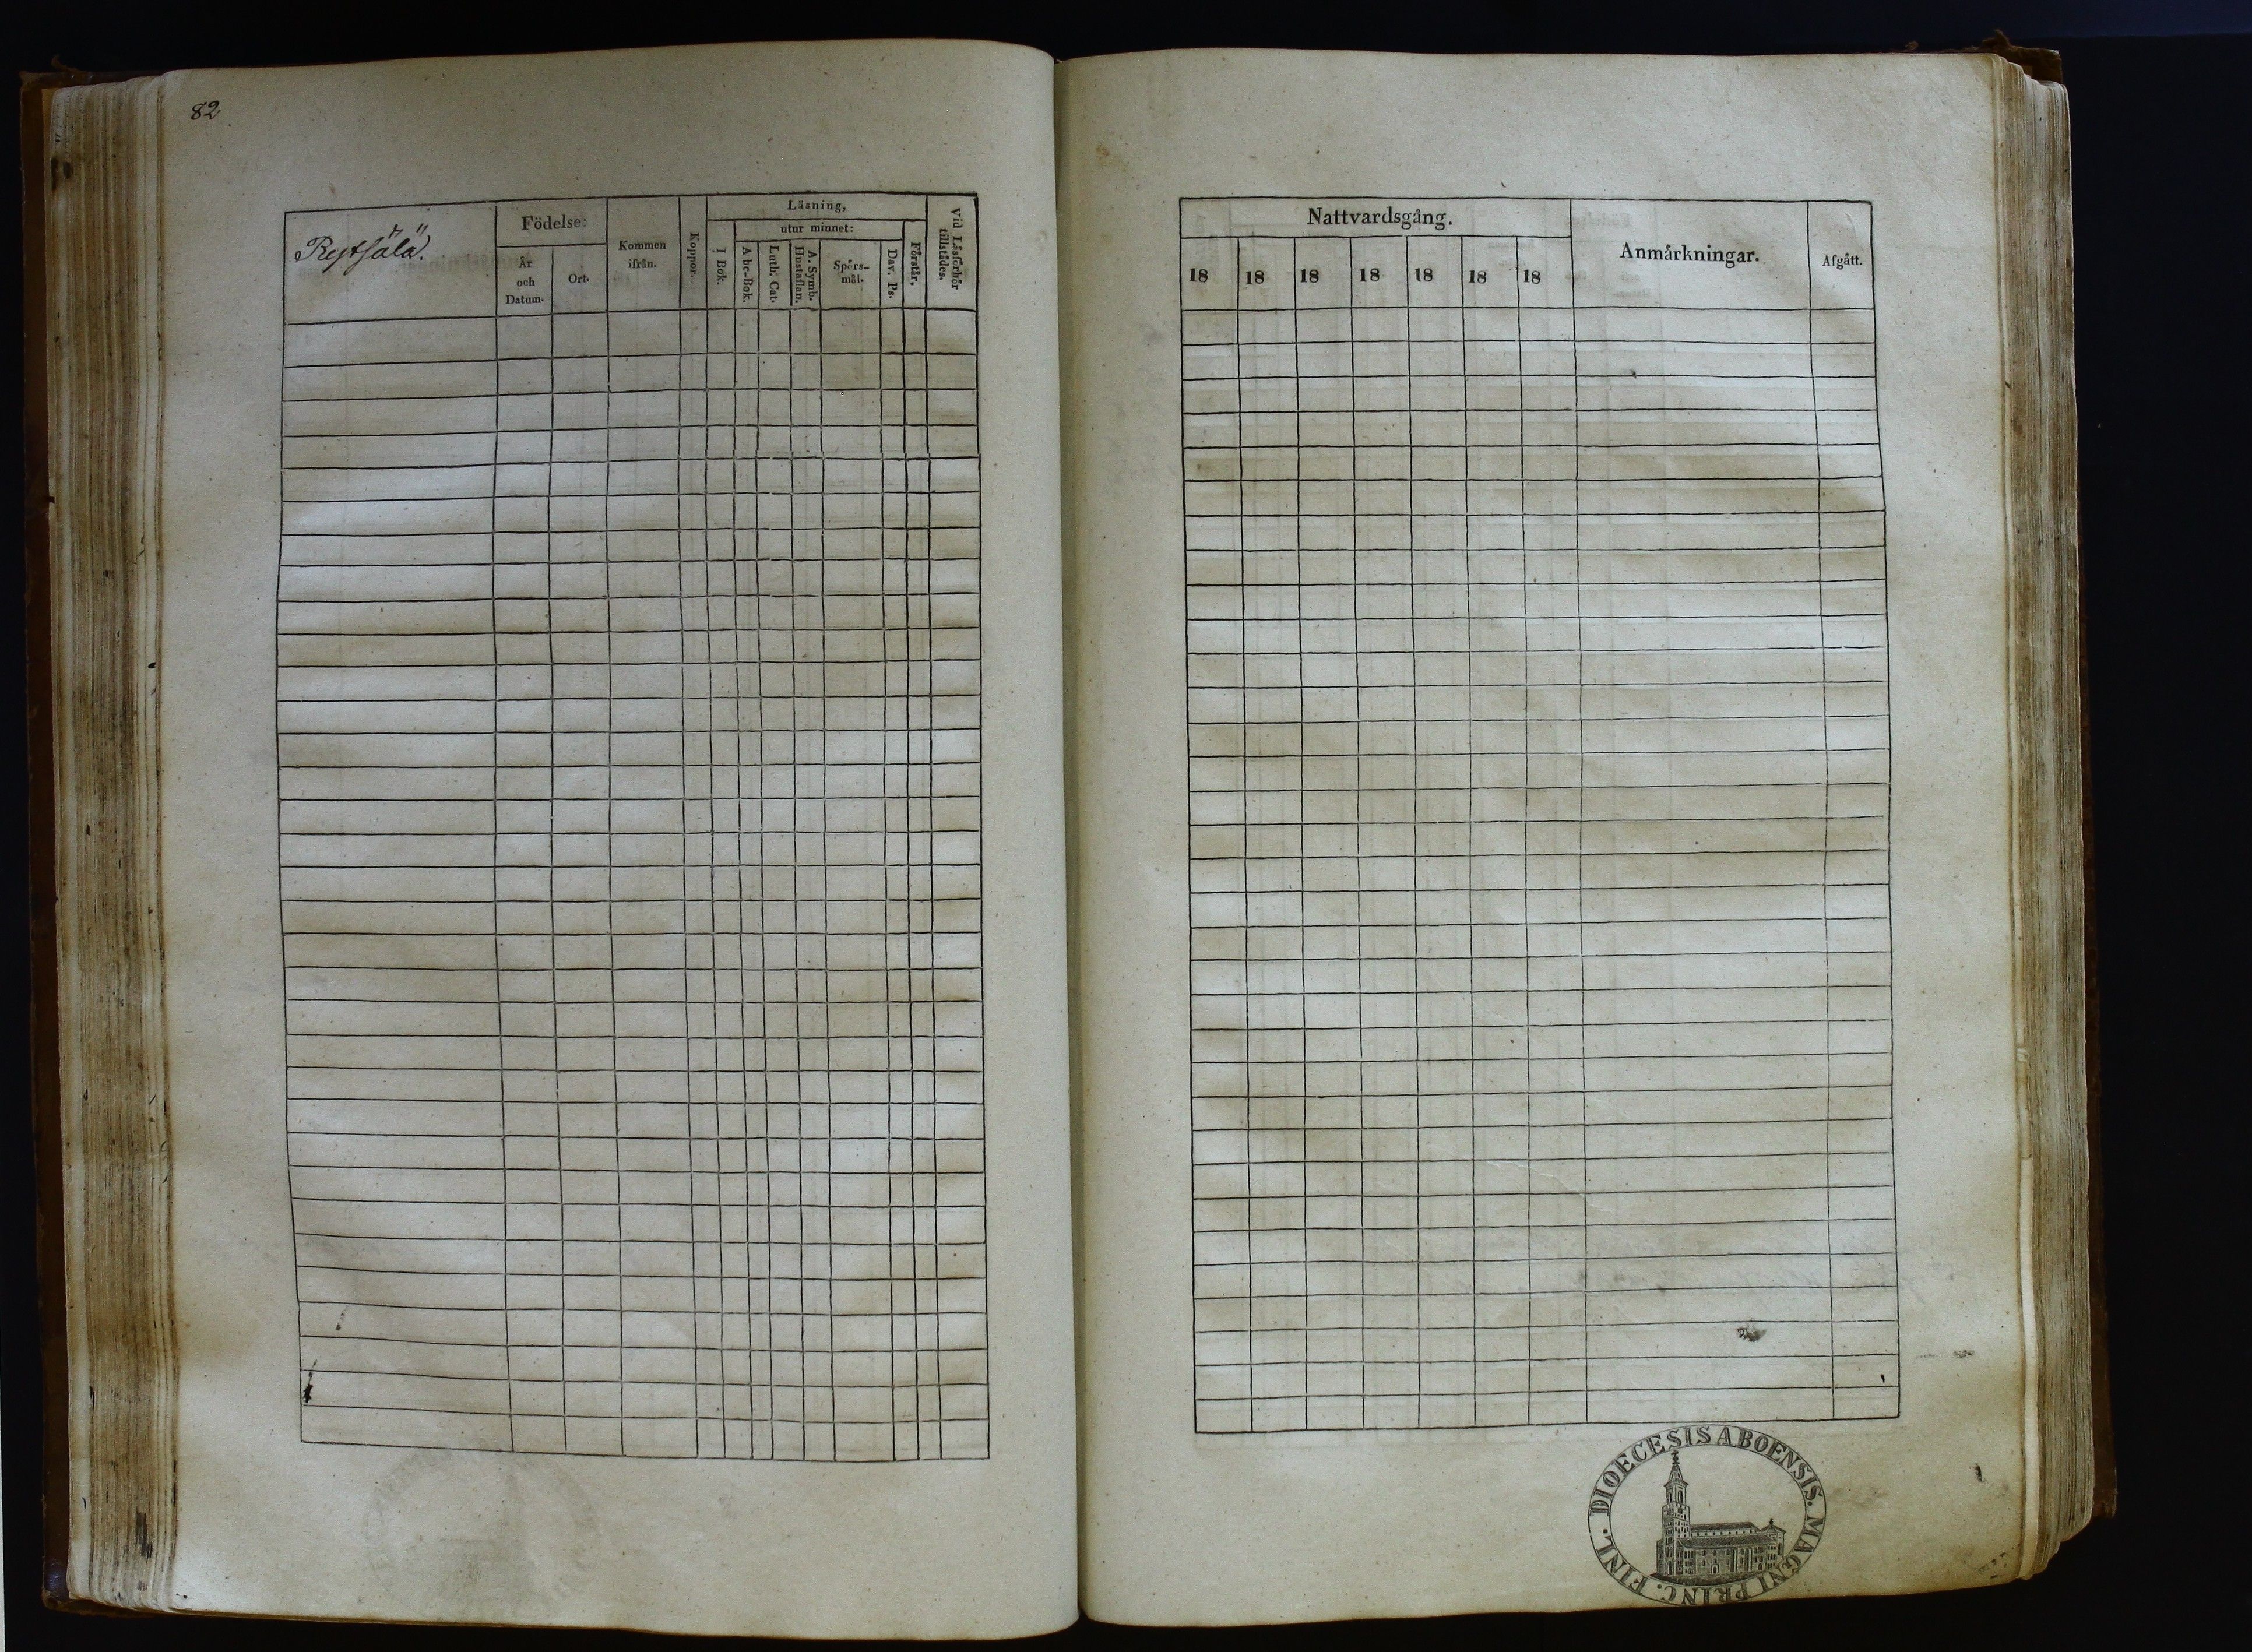 82
Restsälä.
Födelse:
År
och
Datum.
Ort.
Kommen
ifrån.
Koppor.
Läsning,
I Bok.
utur minnet:
Abc-Bok.
Luth. Cat.
A. Symb.
Hustaflan.
Spörs-
mål.
Dav. Ps.
Förstår.
Vid Läsförhör
tillstädes.
Nattvardsgång.
18 18 18 18 18 18 18
Anmärkningar.
Afgått.
DIOECESIS ABOENSIS. MAGNI PRINC. FINL.